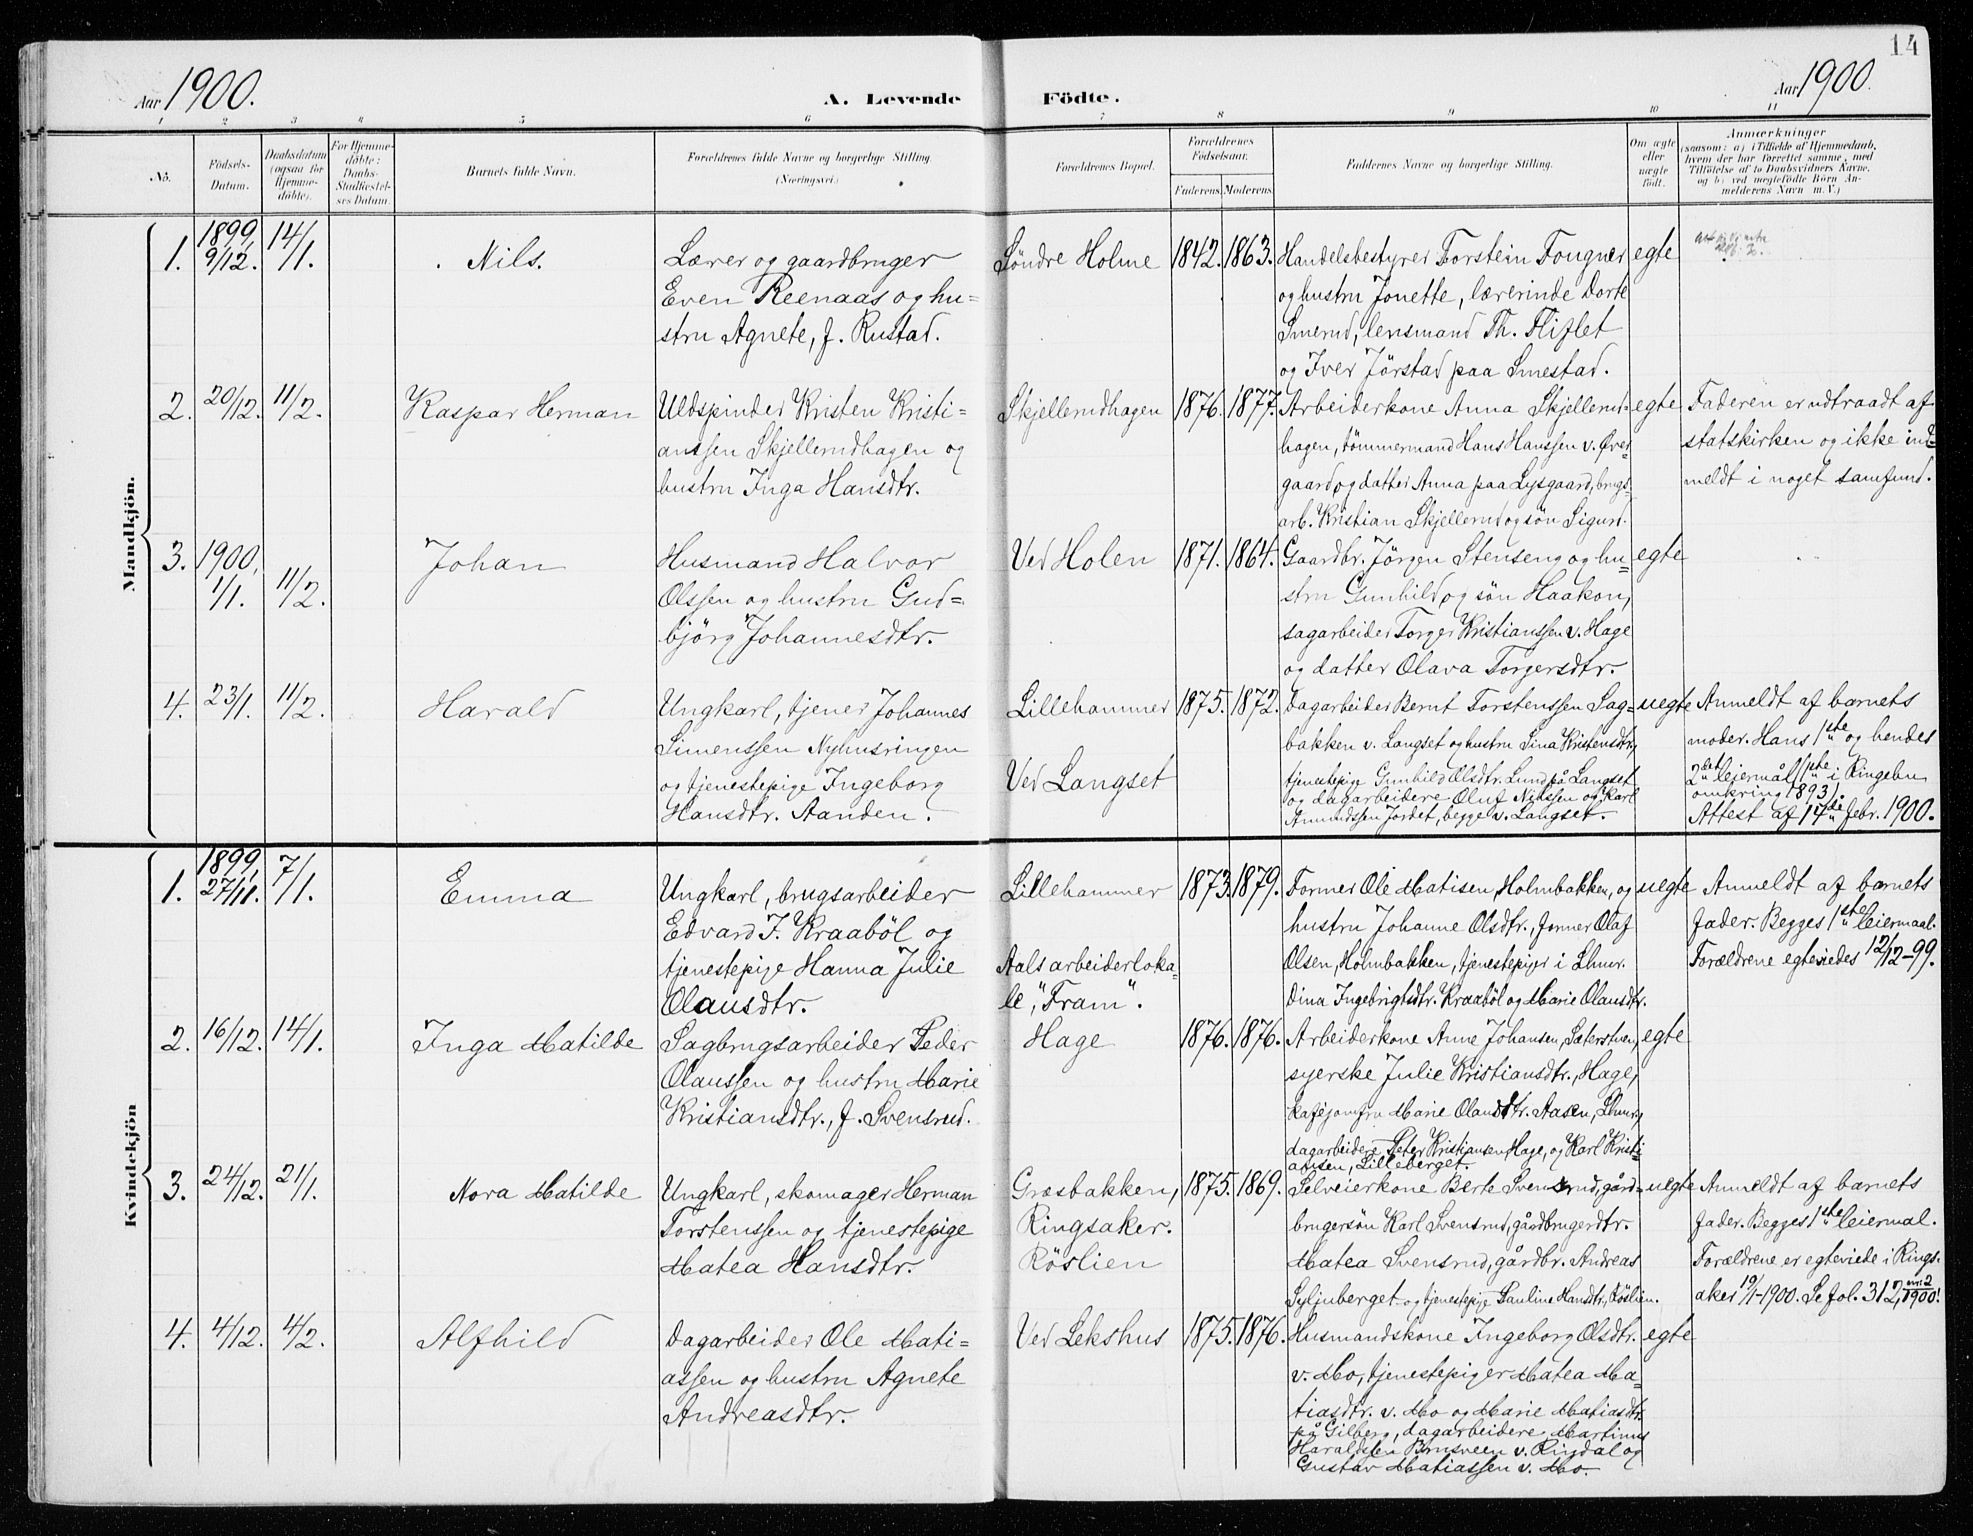 14
Aar 1900.
A. Levende
Födte.
Aar 1900.
1 2 3 4 5 6 7 8 9 10 11
No.
Födsels-Datum.
Daabsdatum (ogsaa for Hjemmedöbte).
For Hjemmedöbte: Daabs-Stadfæstelses Datum.
Barnets fulde Navn.
Forældrenes fulde Navne og borgerlige Stilling.
(Næringsvei.)
Forældrenes Bopæl.
Forældrenes Födselsaar.
Faderens. Moderens.
Faddernes Navne og borgerlige Stilling.
Om ægte eller uægte födt.
Anmærkninger
(saasom: a) i Tilfælde af Hjemmedaab,
hvem der har forrettet samme, med
Tilföielse af to Daabsvidners Navne,
og b) ved uægtefödte Börn An-
melderens Navn m. V.)
Mandkjön.
1.
1899,
9/12.
14/1.
Nils.
Lærer og gaardbruger
Even Reenaas og hu=
stru Agnete, f. Rustad.
Söndre Holme
1842. 1863.
Handelsbestyrer Torstein Fougner
og hustru Jonette, lærerinde Dorte
Smerud, lensmand Th. Fliflet
og Iver Jörstad paa Smestad.
egte
2.
20/12.
11/2.
Kaspar Herman
Uldspinder Kristen Kristi=
anssen Skjellerudhagen og
hustru Inga Hansdtr.
Skjellerudhagen
1876. 1877.
Arbeiderkone Anna Skjellerud-
hagen, tömmermand Hans Hanssen v. Over-
gaard og datter Anna paa Lysgaard, brugs-
arb. Kristian Skjellerud og sön Sigurd.
egte
Faderen er udtraadt af
statskirken og ikke ind-
meldt i noget samfund.
3.
1900,
1/1.
11/2.
Johan
Husmand Halvor
Olssen og hustru Gud=
björg Johannesdtr.
Ved Holen
1871. 1864.
Gaardbr. Jörgen Stenseng og hu-
stru Gunhild og sön Haakon,
sagarbeider Torger Kristianssen v. Hage
og datter Olava Torgersdtr.
egte
4.
23/1.
11/2.
Harald
Ungkarl, tjener Johannes
Simenssen Nyhusringen
og tjenestepige Ingeborg
Hansdtr. Aanden.
Lillehammer
Ved Langset
1875. 1872.
Dagarbeider Bernt Torstenssen Sag-
bakken v. Langset og hustru Sina Kristensdtr,
tjenestepige Gunhild Olsdtr. Lund på Langset
og dagarbeidere Oluf Nilssen og Karl
Amundssen Jordet, begge v. Langset.
uegte
Anmeldt af barnets
moder. Hans 1ste og hendes
2det leiermål (1ste i Ringebu
omkring 1893).
Attest af 14de febr. 1900.
Kvindekjön
1.
1899,
27/11.
7/1.
Emma
Ungkarl, brugsarbeider
Edvard J. Kraaböl og
tjenestepige Hanna Julie
Olausdtr.
Lillehammer
Aals arbeiderloka-
le, "Fram".
1873. 1879.
Former Ole Matisen, Holmbakken, og
hustru Johanne Olsdtr., former Olaf
Olsen, Holmbakken, tjenestepiger i Lhmr.
Dina Ingebrigtsdtr. Kraaböl og Marie Olausdtr.
uegte
Anmeldt af barnets
fader. Begges 1ste leiermaal.
Forældrene egteviedes 12/12-99.
2.
16/12.
14/1.
Inga Matilde
Sagbrugsarbeider Peder
Olaussen og hustru Marie
Kristiansdtr., f. Svensrud.
Hage
1876. 1876.
Arbeiderkone Anne Johansen, Sæterstuen,
syerske Julie Kristiansdtr., Hage,
kaféjomfru Marie Olausdtr. Aasen, Lhmr,
dagarbeidere Peter Kristiansen Hage, og Karl Kristi-
ansen, Lilleberget.
egte
3.
24/12.
21/1.
Nora Matilde
Ungkarl, skomager Herman
Torstenssen og tjenestepige
Matea Hansdtr.
Græsbakken,
Ringsaker.
Röslien
1875. 1869.
Selveierkone Berte Svensrud, gård-
brugersön Karl Svensrud, gårdbrugerdtr.
Matea Svensrud, gårdbr. Andreas
Syljuberget og tjenestepige Pauline Hansdtr., Röslien.
uegte
Anmeldt af barnets
fader. Begges 1ste leiermal.
Forældrene er egteviede i Rings-
aker 19/1-1900. Se fol. 312, nr. 2 1900.
4.
4/12.
4/2.
Alfhild
Dagarbeider Ole Mati=
assen og hustru Agnete
Andreasdtr.
Ved Lekshus
1875. 1876.
Husmandskone Ingeborg Olsdtr.
v. Mo, tjenestepiger Matea Ma-
tiasdtr. v. Mo og Marie Matiasdtr.
på Gilberg, dagarbeidere Martinus
Haraldssen Brusveen v. Ringdal og
Gustav Matiassen v. Mo.
egte